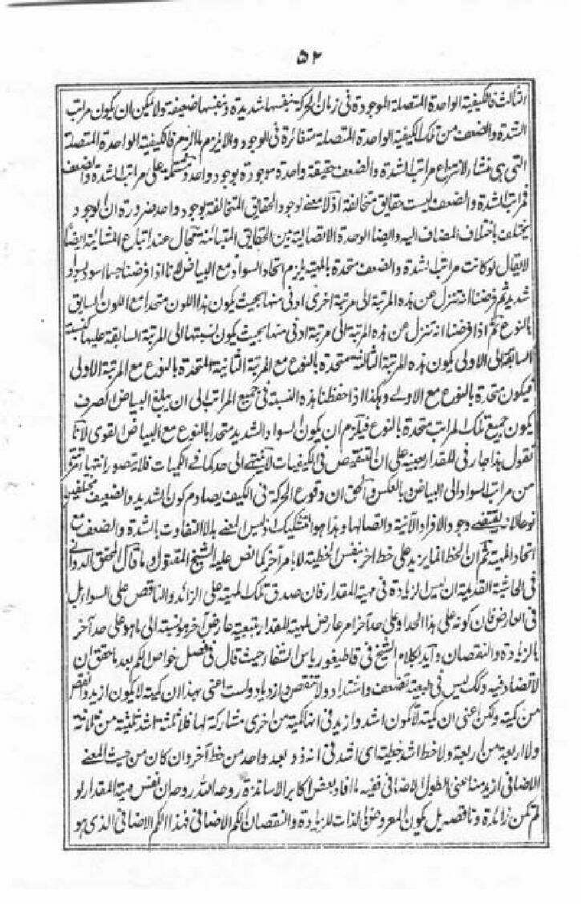 ۵۲
الثالث فالكيفية الواحدة المتصلة الموجودة فى زمان الحركة بنفسها شديدة وبنفسها ضعيفة ولا يمكن ان يكون مراتب
الشدة والضعف من تلك الكيفية الواحدة المتصلة متغائرة فى الوجود والا يلزم ما لزم فالكيفية الواحدة المتصلة
التى هى منشاء لانتزاع مراتب الشدة والضعف حقيقة واحدة موجودة بوجود واحد مشتملة على مراتب الشدة والضعف
فمراتب الشدة والضعف ليست حقايق متخالفة اذ لا معنى لوجود الحقايق المتخالفة بوجود واحد ضرورة ان الوجود
يختلف باختلاف المضاف اليه وايضا الوحدة الاتصالية بين الحقايق المتباينة محال عند اتباع المشائية ايضا
لا يقال لو كانت مراتب الشدة والضعف متحدة بالمهية يلزم اتحاد السواد مع البياض لانا اذا فرضنا جسما اسود بسواد
شديد ثم فرضنا انه تنزل عن هذه المرتبة الى مرتبة اخرى ادنى منها بحيث يكون هذا اللون متحدا مع اللون السابق
بالنوع ثم اذا فرضنا انه تنزل عن هذه المرتبة الى مرتبة ادنى منها بحيث يكون نسبتها الى المرتبة السابقة عليها كنسبة
السابقة الى الاولى يكون هذه المرتبة الثالثة متحدة بالنوع مع المرتبة الثانية المتحدة بالنوع مع المرتبة الاولى
فيكون متحدة بالنوع مع الاولى وهكذا اذا حفظنا هذه النسبة فى جميع المراتب الى ان يبلغ البياض الصرف
يكون جميع تلك المراتب متحدة بالنوع فيلزم ان يكون السواد الشديد متحدا بالنوع مع البياض القوى لانا
نقول هذا جار فى المقدار بعينه على ان التنقص فى الكيفيات لا ينتهى الى حد كما فى الكميات فلا يتصور انتهاء تنزل
من مراتب السواد الى البياض بالعكس والحق ان وقوع الحركة فى الكيف يصادم كون الشديد والضعيف مختلفين
نوعا لانه يقتضى وجود الافراد الآنية واتصالها وهذا هو التشكيك اذ ليس المعنى به الا التفاوت بالشدة والضعف مع
اتحاد المهية ثم ان الخط انما يزيد على خط اخر بنفس الخطية لا بامر آخر كما نص عليه الشيخ المقتول ما قال المحقق الدوانى
فى الحاشية القديمة ان ليس الزيادة فى مهية المقدار فان صدق تلك المهية على الزائد والناقص على السواء بل
فى العارض فان كونه على هذا الحد او على حد آخر امر عارض لمهية المقدار بتبعية عارض آخر هو نسبته الى ما هو على حد آخر
بالزيادة والنقصان وايد بكلام الشيخ فى قاطيغورياس الشفا حيث قال فى فصل خواص الكم بعد ما حقق ان
لا تضاد فيه وكذلك ليس فى طبيعته تضعف واشتداد ولا تنقص وازدياد ولست اعنى بهذا ان كمية لا يكون ازيد وانقص
من كمية ولكن اعنى ان كمية لا تكون اشد وازيد فى انها كمية من اخرى مشاركة لها فلا ثلثة اشد ثلثية من ثلاثة
ولا اربعة من اربعة ولا خط اشد خطية اى اشد فى انه ذو بعد واحد من خط آخر وان كان من حيث المعنى
الاضافى ازيد منه اعنى الطول الاضافى ففيه ما افاد بعض اكابر الاساتذة روحه الله روحه ان نفس مهية المقدار لو
لم تكن زائدة وناقصة بل يكون المعروض بالذات للزيادة والنقصان الكم الاضافى فهذا الكم الاضافى الذى هو